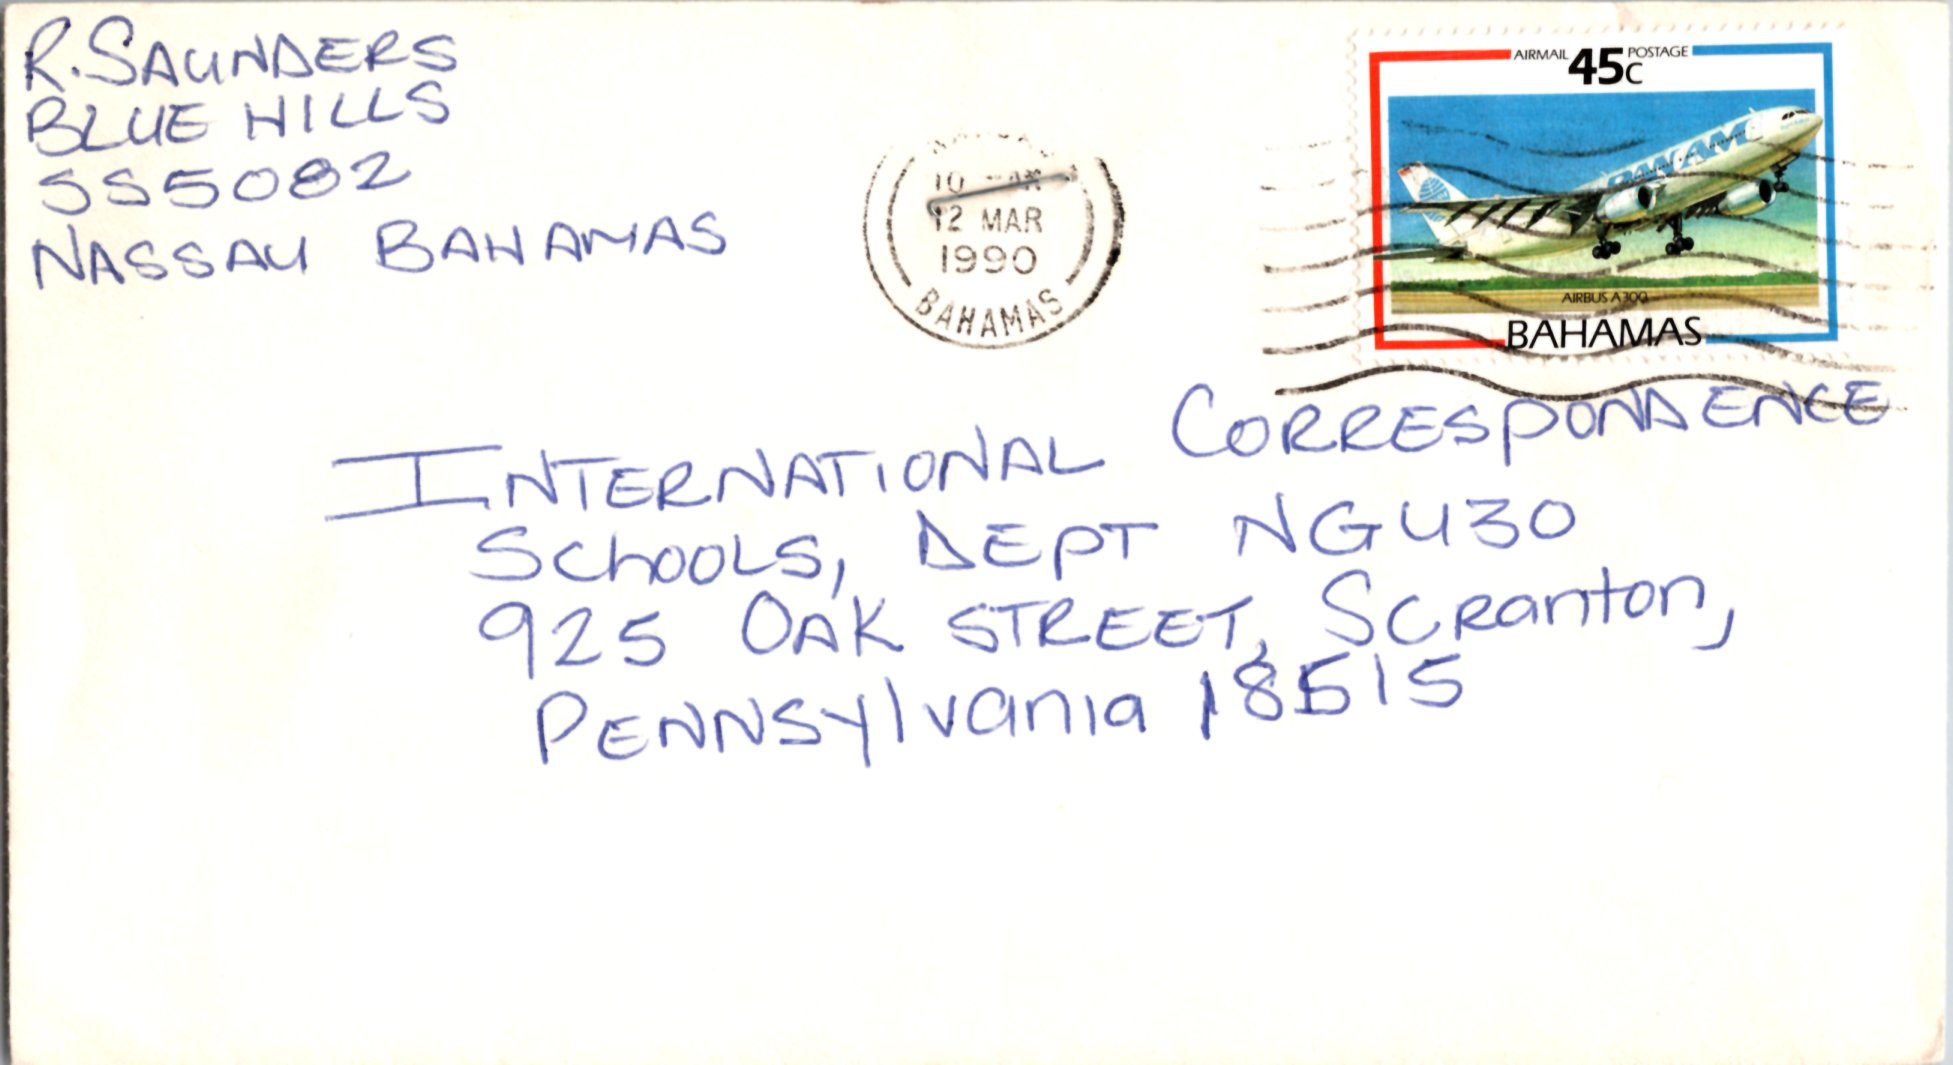 R. SAUNDERS
BLUE HILLS
SS5082
NASSAU BAHAMAS
12 MAR
1990
BAHAMAS
AIRMAIL 45c POSTAGE
PAN AM
AIRBUS A300
BAHAMAS
INTERNATIONAL CORRESPONDENCE
SCHOOLS, DEPT NGU30
925 OAK STREET, SCRanton,
PENNSylvania 18515